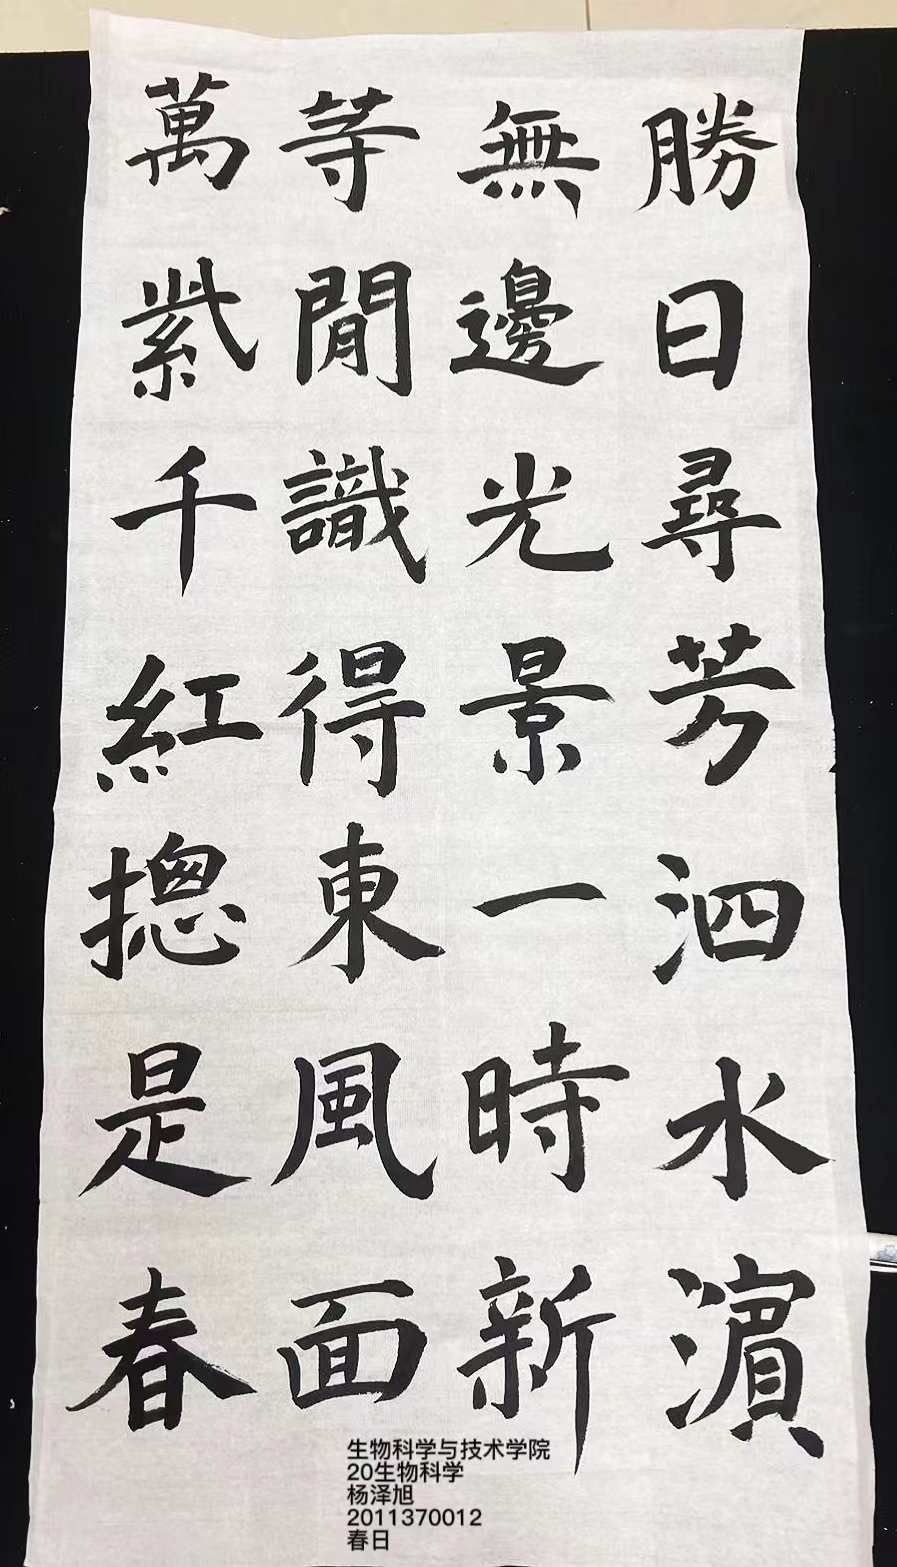 勝日尋芳泗水濵
無邊光景一時新
等閒識得東風面
萬紫千紅摠是春
生物科学与技术学院
20生物科学
杨泽旭
2011370012
春日